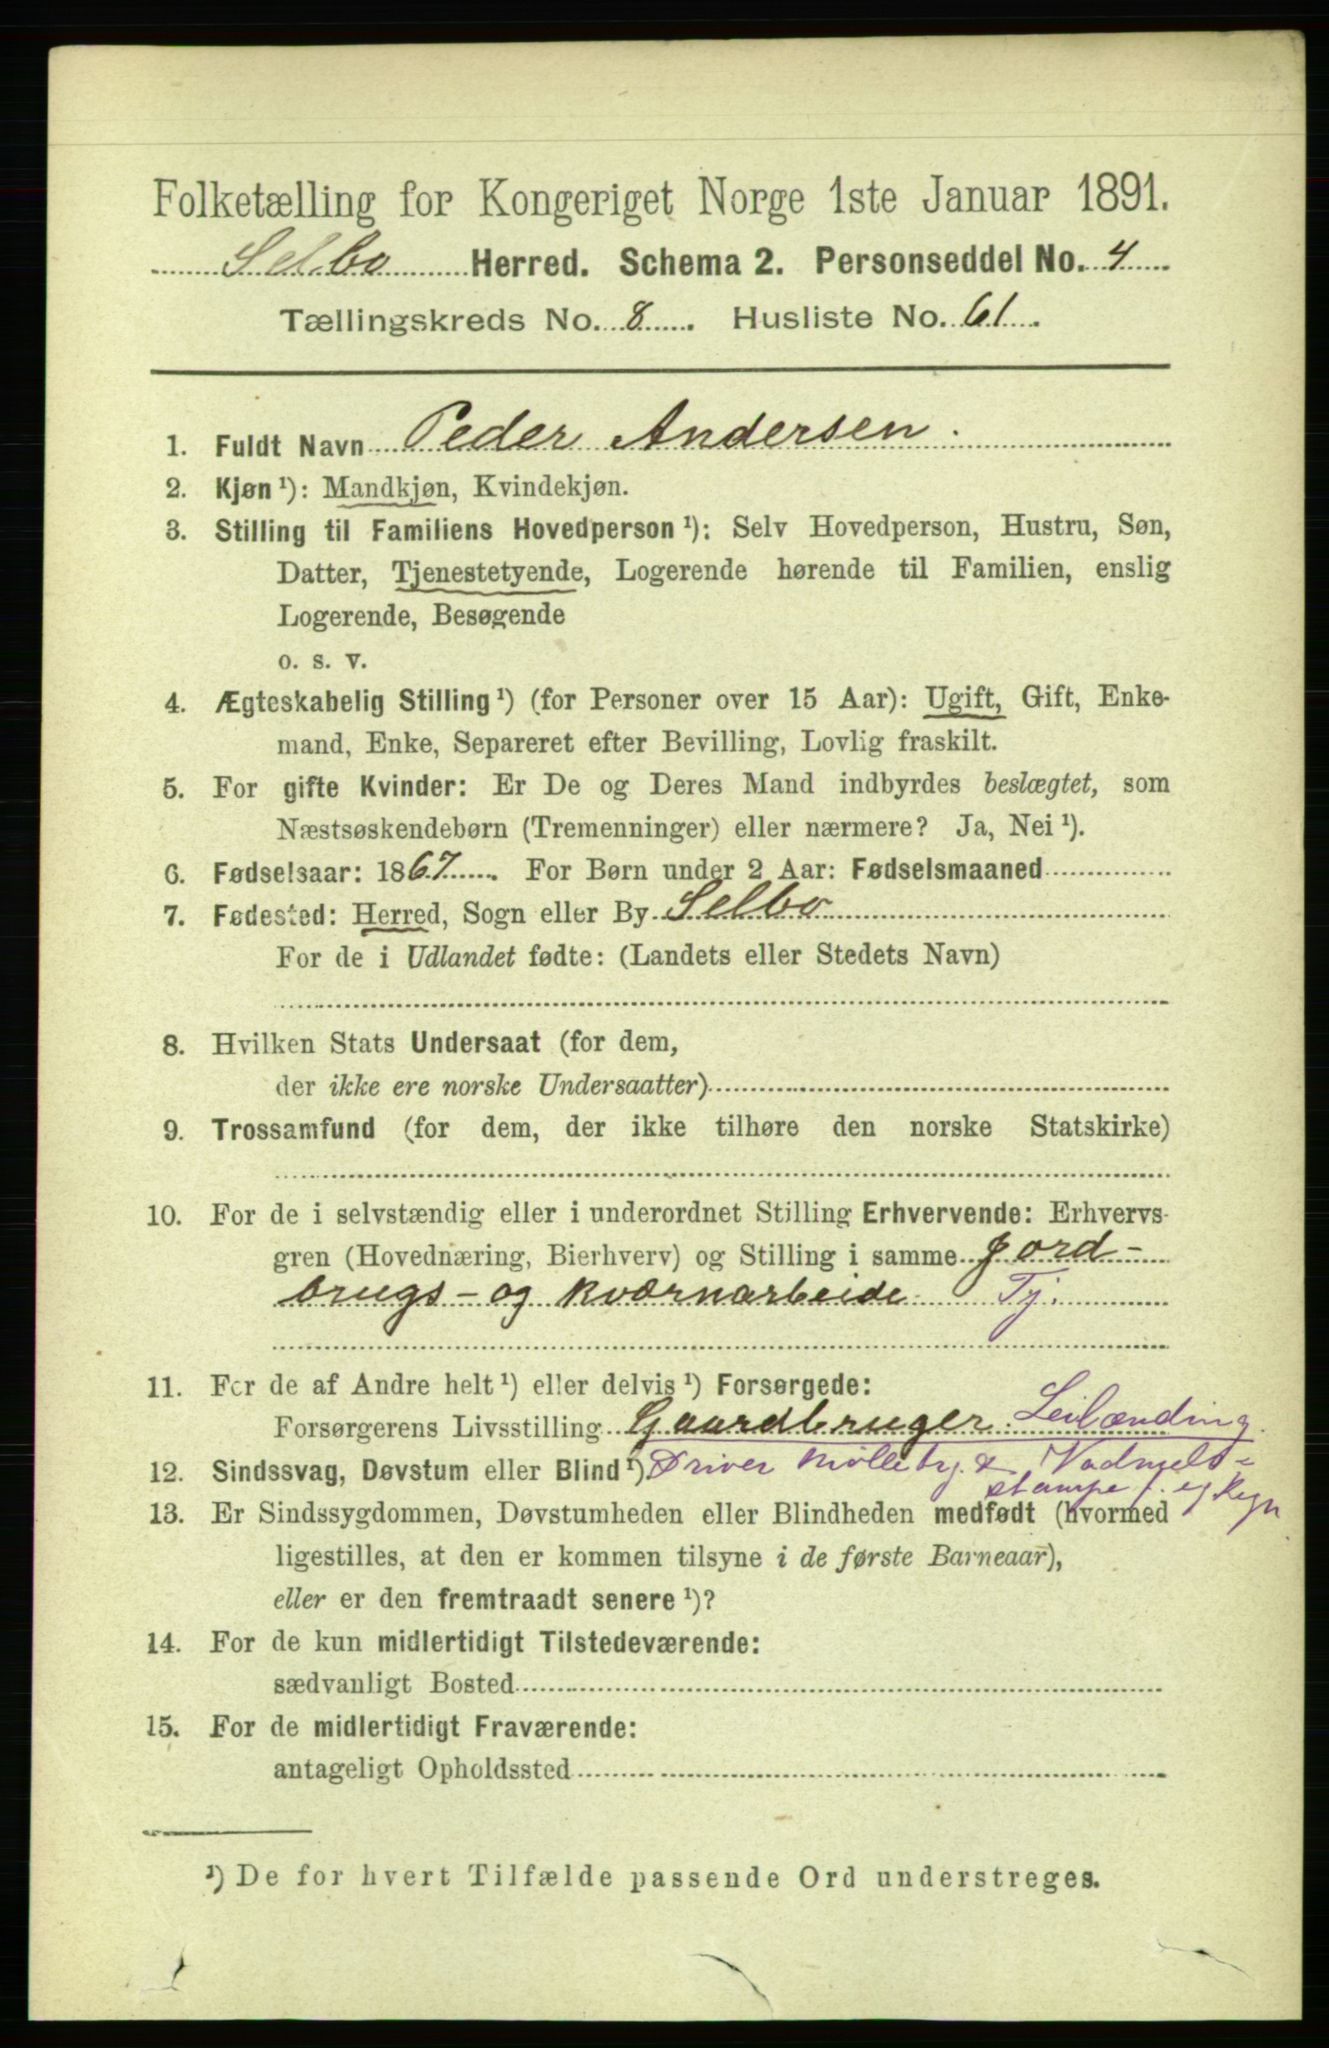 Folketælling for Kongeriget Norge 1ste Januar 1891.
Selbo Herred. Schema 2. Personseddel No. 4
Tællingskreds No. 8. Husliste No. 61.
1. Fuldt Navn Peder Andersen.
2. Kjøn ¹): Mandkjøn, Kvindekjøn.
3. Stilling til Familiens Hovedperson ¹): Selv Hovedperson, Hustru, Søn,
Datter, Tjenestetyende, Logerende hørende til Familien, enslig
Logerende, Besøgende
o. s. v.
4. Ægteskabelig Stilling ¹) (for Personer over 15 Aar): Ugift, Gift, Enke-
mand, Enke, Separeret efter Bevilling, Lovlig fraskilt.
5. For gifte Kvinder: Er De og Deres Mand indbyrdes beslægtet, som
Næstsøskendebørn (Tremenninger) eller nærmere? Ja, Nei ¹).
6. Fødselsaar: 1867. For Børn under 2 Aar: Fødselsmaaned
7. Fødested: Herred, Sogn eller By Selbo
For de i Udlandet fødte: (Landets eller Stedets Navn)
8. Hvilken Stats Undersaat (for dem,
der ikke ere norske Undersaatter)
9. Trossamfund (for dem, der ikke tilhøre den norske Statskirke)
10. For de i selvstændig eller i underordnet Stilling Erhvervende: Erhvervs-
gren (Hovednæring, Bierhverv) og Stilling i samme Jord-
brugs- og kværnarbeide Tj.
11. For de af Andre helt ¹) eller delvis ¹) Forsørgede:
Forsørgerens Livsstilling Gaardbruger. Leilænding.
12. Sindssvag, Døvstum eller Blind ¹) Driver Møllebg. & Vadmels-
stampe f. eg Regn.
13. Er Sindssygdommen, Døvstumheden eller Blindheden medfødt (hvormed
ligestilles, at den er kommen tilsyne i de første Barneaar),
eller er den fremtraadt senere ¹)?
14. For de kun midlertidigt Tilstedeværende:
sædvanligt Bosted
15. For de midlertidigt Fraværende:
antageligt Opholdssted
¹) De for hvert Tilfælde passende Ord understreges.